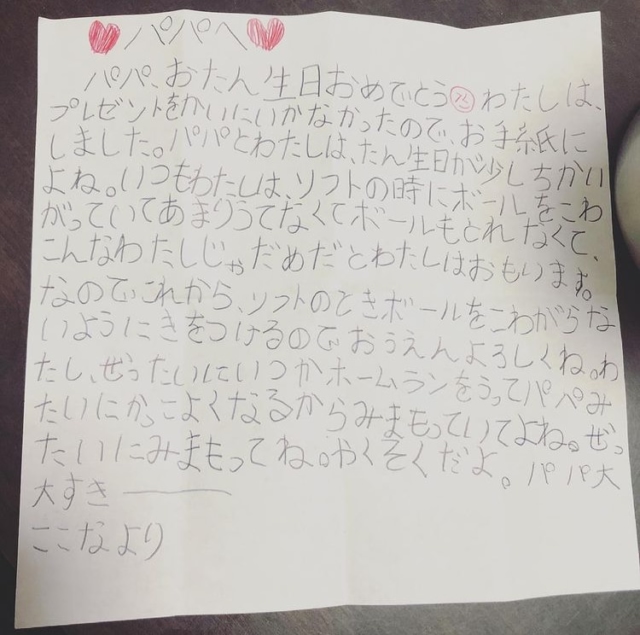 パパへ
パパ、おたん生日おめでとう わたしは、
プレゼントをかいにいかなかったので、お手紙に
しました。パパとわたしは、たん生日が少しちかい
よね。いつもわたしは、ソフトの時にボールをこわ
がっていてあまりうてなくてボールもとれなくて、
こんなわたしじゃだめだとわたしはおもいます。
なので、これから、ソフトのときボールをこわがらな
いようにきをつけるのでおうえんよろしくね。わ
たし、ぜったいにいつかホームランをうってパパみ
たいにかっこよくなるからみまもっていてよね。ぜっ
たいにみまもってね。やくそくだよ。パパ大
大すきー
ここなより